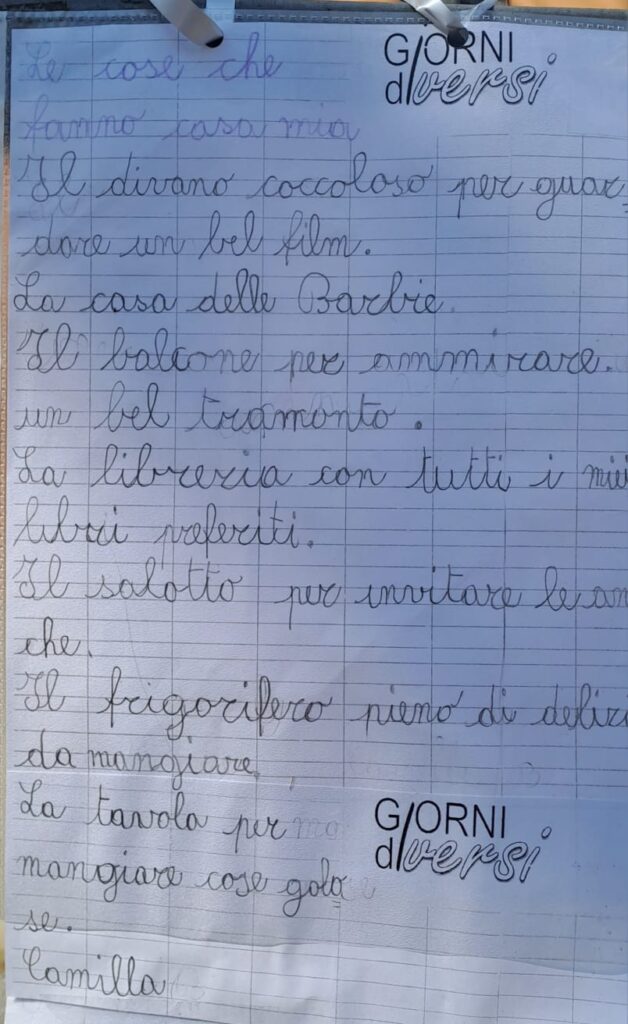 Le cose che
GIORNI
dIversi
fanno casa mia
Il divano coccoloso per guar=
dare un bel film.
La casa delle Barbie.
Il balcone per ammirare.
un bel tramonto.
La libreria con tutti i miei
libri preferiti.
Il salotto per invitare le
che.
Il frigorifero pieno di
da mangiare.
La tavola per
GIORNI
dIversi
mangiare cose golo=
se.
Camilla